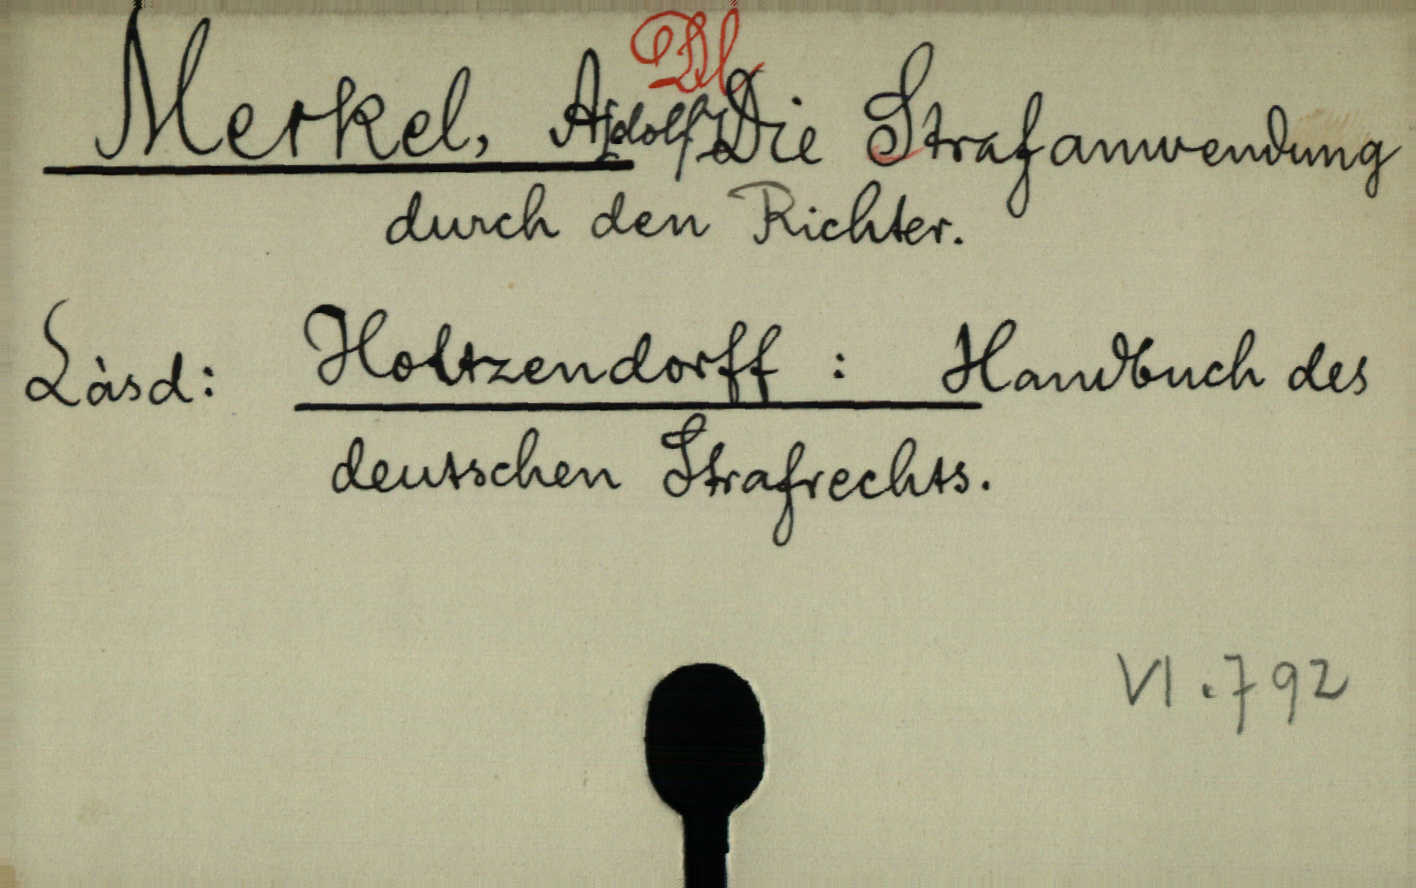 Merkel, A[dolf]: Die Strafanwendung
durch den Richter.
Lásd: Holtzendorff : Handbuch des
deutschen Strafrechts.
VI.792